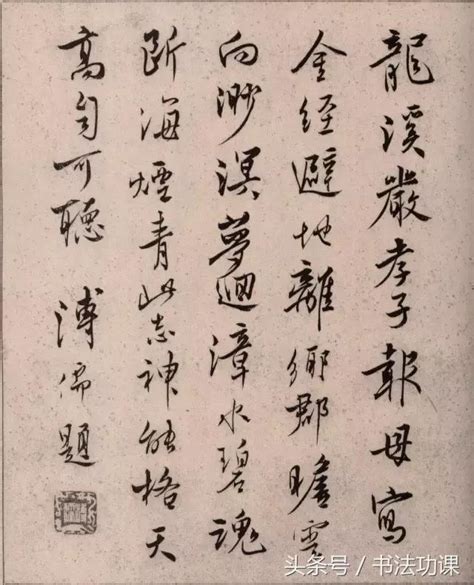 龍溪嚴孝子報母寫
金經避地離鄉郡瞻雲
向渺溟夢迴漳水碧魂
斷海煙青此志神能格天
高自可聽 溥儒題
头条号 / 书法功课